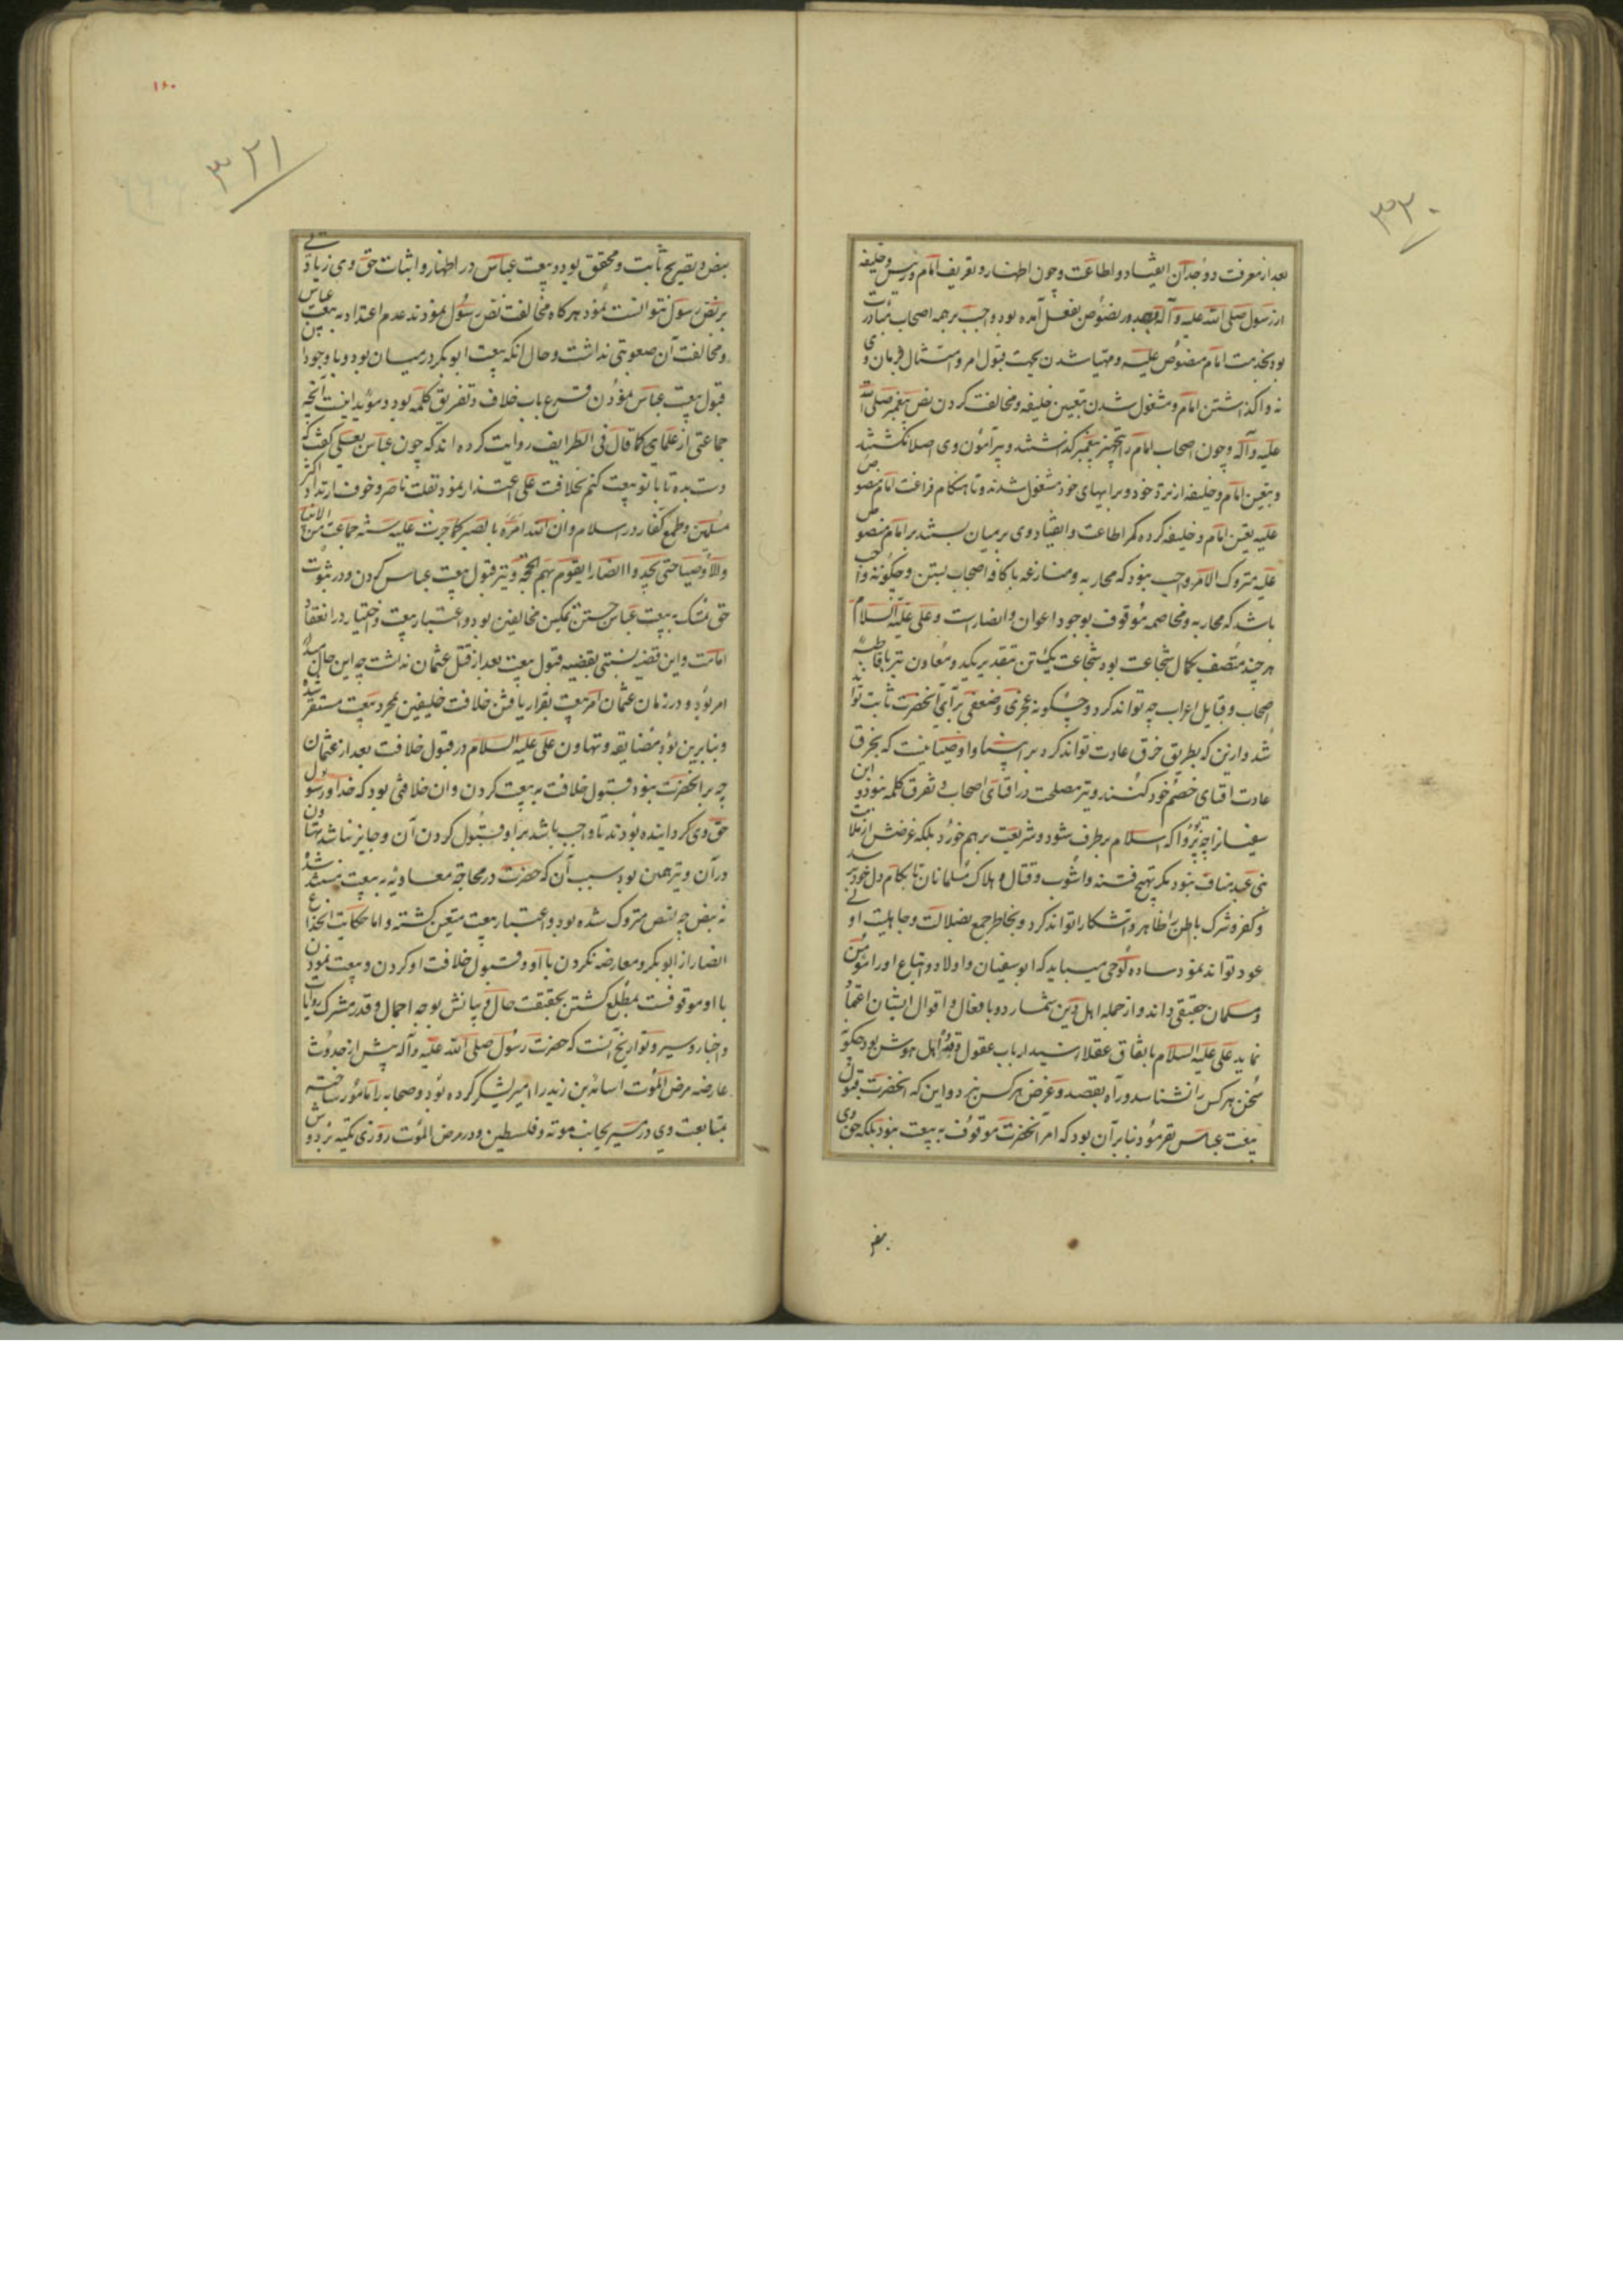 ۳۲۰
بعد از معرفت و وجدان انقیاد و اطاعت و چون اظهار و تعریف امام و رئیس و خلیفه
از رسول صلی الله علیه وآله بصدور نصوص بفعل آمده بود واجب بر همه اصحاب مبادرت
بود بخدمت امام منصوص علیه و مهیا شدن بجهت قبول امر و امتثال فرمان وی
نه واگذاشتن امام و مشغول شدن بتعیین خلیفه و مخالفت کردن نص پیغمبر صلی الله
علیه وآله و چون اصحاب امام را بتجهیز پیغمبر گذاشتند و پیرامون وی اصلا نگشتند
و بتعیین امام و خلیفه از نزد خود و برایهای خود مشغول شدند و تا هنگام فراغت امام منصوص
علیه تعین امام و خلیفه کرده کمر اطاعت و انقیاد وی بر میان بستند بر امام منصوص
علیه متروک الامر واجب نبود که محاربه و منازعه با کافه اصحاب بستن و چگونه واجب
باشد که محاربه و مخاصمه موقوف بوجود اعوان و انصار است و علی علیه السلام
هر چند متصف بکمال شجاعت بود شجاعت یک تن بتقدیر یک دو معاون نیز با قاطبه
اصحاب و قبایل اعراب چه تواند کرد و چگونه عجزی و ضعفی برای آنحضرت ثابت تواند
شد و ازین که بطریق خرق عادت تواند کرد بر انبیا و اوصیا نیست که بخرق
عادت افنای خصم خود کنند و نیز مصلحت در افنای اصحاب و تفرق کلمه نبود و ابن
سفیان را چه پروا که اسلام بر طرف شود و شریعت بر هم خورد بلکه غرضش از ملامت
بنی عبد مناف نبود مگر تهیج فتنه و آشوب و قتال و هلاک مسلمانان تا بکام دل خود رسد
و کفر و شرک باطن را ظاهر و آشکارا تواند کرد و بخاطر جمع بضلالت و جاهلیت اولی
عود تواند نمود ساده لوحی میباید که ابو سفیان و اولاد و اتباع او را مؤمن
و مسلمان حقیقی داند و از جمله اهل دین شمارد و بافعال و اقوال ایشان اعتماد
نماید علی علیه السلام باتفاق عقلا رئیس ارباب عقول و اهل هوش بود چگونه
سخن هر کس را نشناسد و راه بقصد و غرض هر کس نبرد و این که آنحضرت قبول
بیعت عباس نفرمود بنا بر آن بود که امر آنحضرت موقوف به بیعت نبود بلکه حق وی
بنص و
۱۶۰
۳۲۱
بنص و تصریح ثابت و محقق بود و بیعت عباس در اظهار و اثبات حق وی زیادتی
بر نص رسول نتوانست نمود هر گاه مخالفت نص رسول نمودند عدم اعتداد به بیعت عباس
و مخالفت آن صعوبتی نداشت و حال انکه بیعت ابو بکر در میان بود و با وجود این
قبول بیعت عباس نمودن قرع باب خلاف و تفریق کلمه بود و مؤید اینست آنچه
جماعتی از علمای کما قال فی الطرایف روایت کرده اند که چون عباس بعلی گفت که
دست بده تا با تو بیعت کنم بخلافت علی اعتذار نمود بقلت ناصر و خوف ارتداد اکثر
مسلمین و طمع کفار در اسلام و ان الله امره بالصبر کما جرت علیه سنة جماعة من الانبیا
والاوصیا حتی یجدوا انصارا یقوم بهم الحجة و نیز قبول بیعت عباس کردن و در ثبوت
حق تمسک به بیعت عباس جستن تمکین مخالفین بود و اعتبار بیعت و اختیار در انعقاد
امامت و این قضیه نسبتی بقضیه قبول بیعت بعد از قتل عثمان نداشت چه این حال
امر بود و در زمان عثمان امر بیعت بقرار یافتن خلافت خلیفین بمجرد بیعت مستقر شده
و بنابرین بود مضایقه و تهاون علی علیه السلام در قبول خلافت بعد از عثمان
چه بر آنحضرت نبود قبول خلافت به بیعت کردن و ان خلافتی بود که خدا و رسول
حق وی گردانیده بودند تا واجب باشد بر او قبول کردن آن و جایز نباشد تهاون
در آن و نیز همین بود سبب آن که حضرت در محاجه معاویه به بیعت متمسک شد
نه بنص چه نص متروک شده بود و اعتبار بیعت متعین گشته و اما حکایت انخداع
انصار از ابو بکر و معارضه نکردن با او و قبول خلافت او کردن و بیعت نمودن
با او موقوفست بمطلع گشتن بحقیقت حال و بیانش بوجه اجمال و قدر مشترک روایات
و اخبار و سیر و تواریخ آنست که حضرت رسول صلی الله علیه وآله پیش از حدوث
عارضه مرض الموت اسامة بن زید را امیر لشکر کرده بود و صحابه را مامور ساخته
بمتابعت وی در مسیر بجانب موته و فلسطین و در مرض الموت روزی تکیه بر دوش